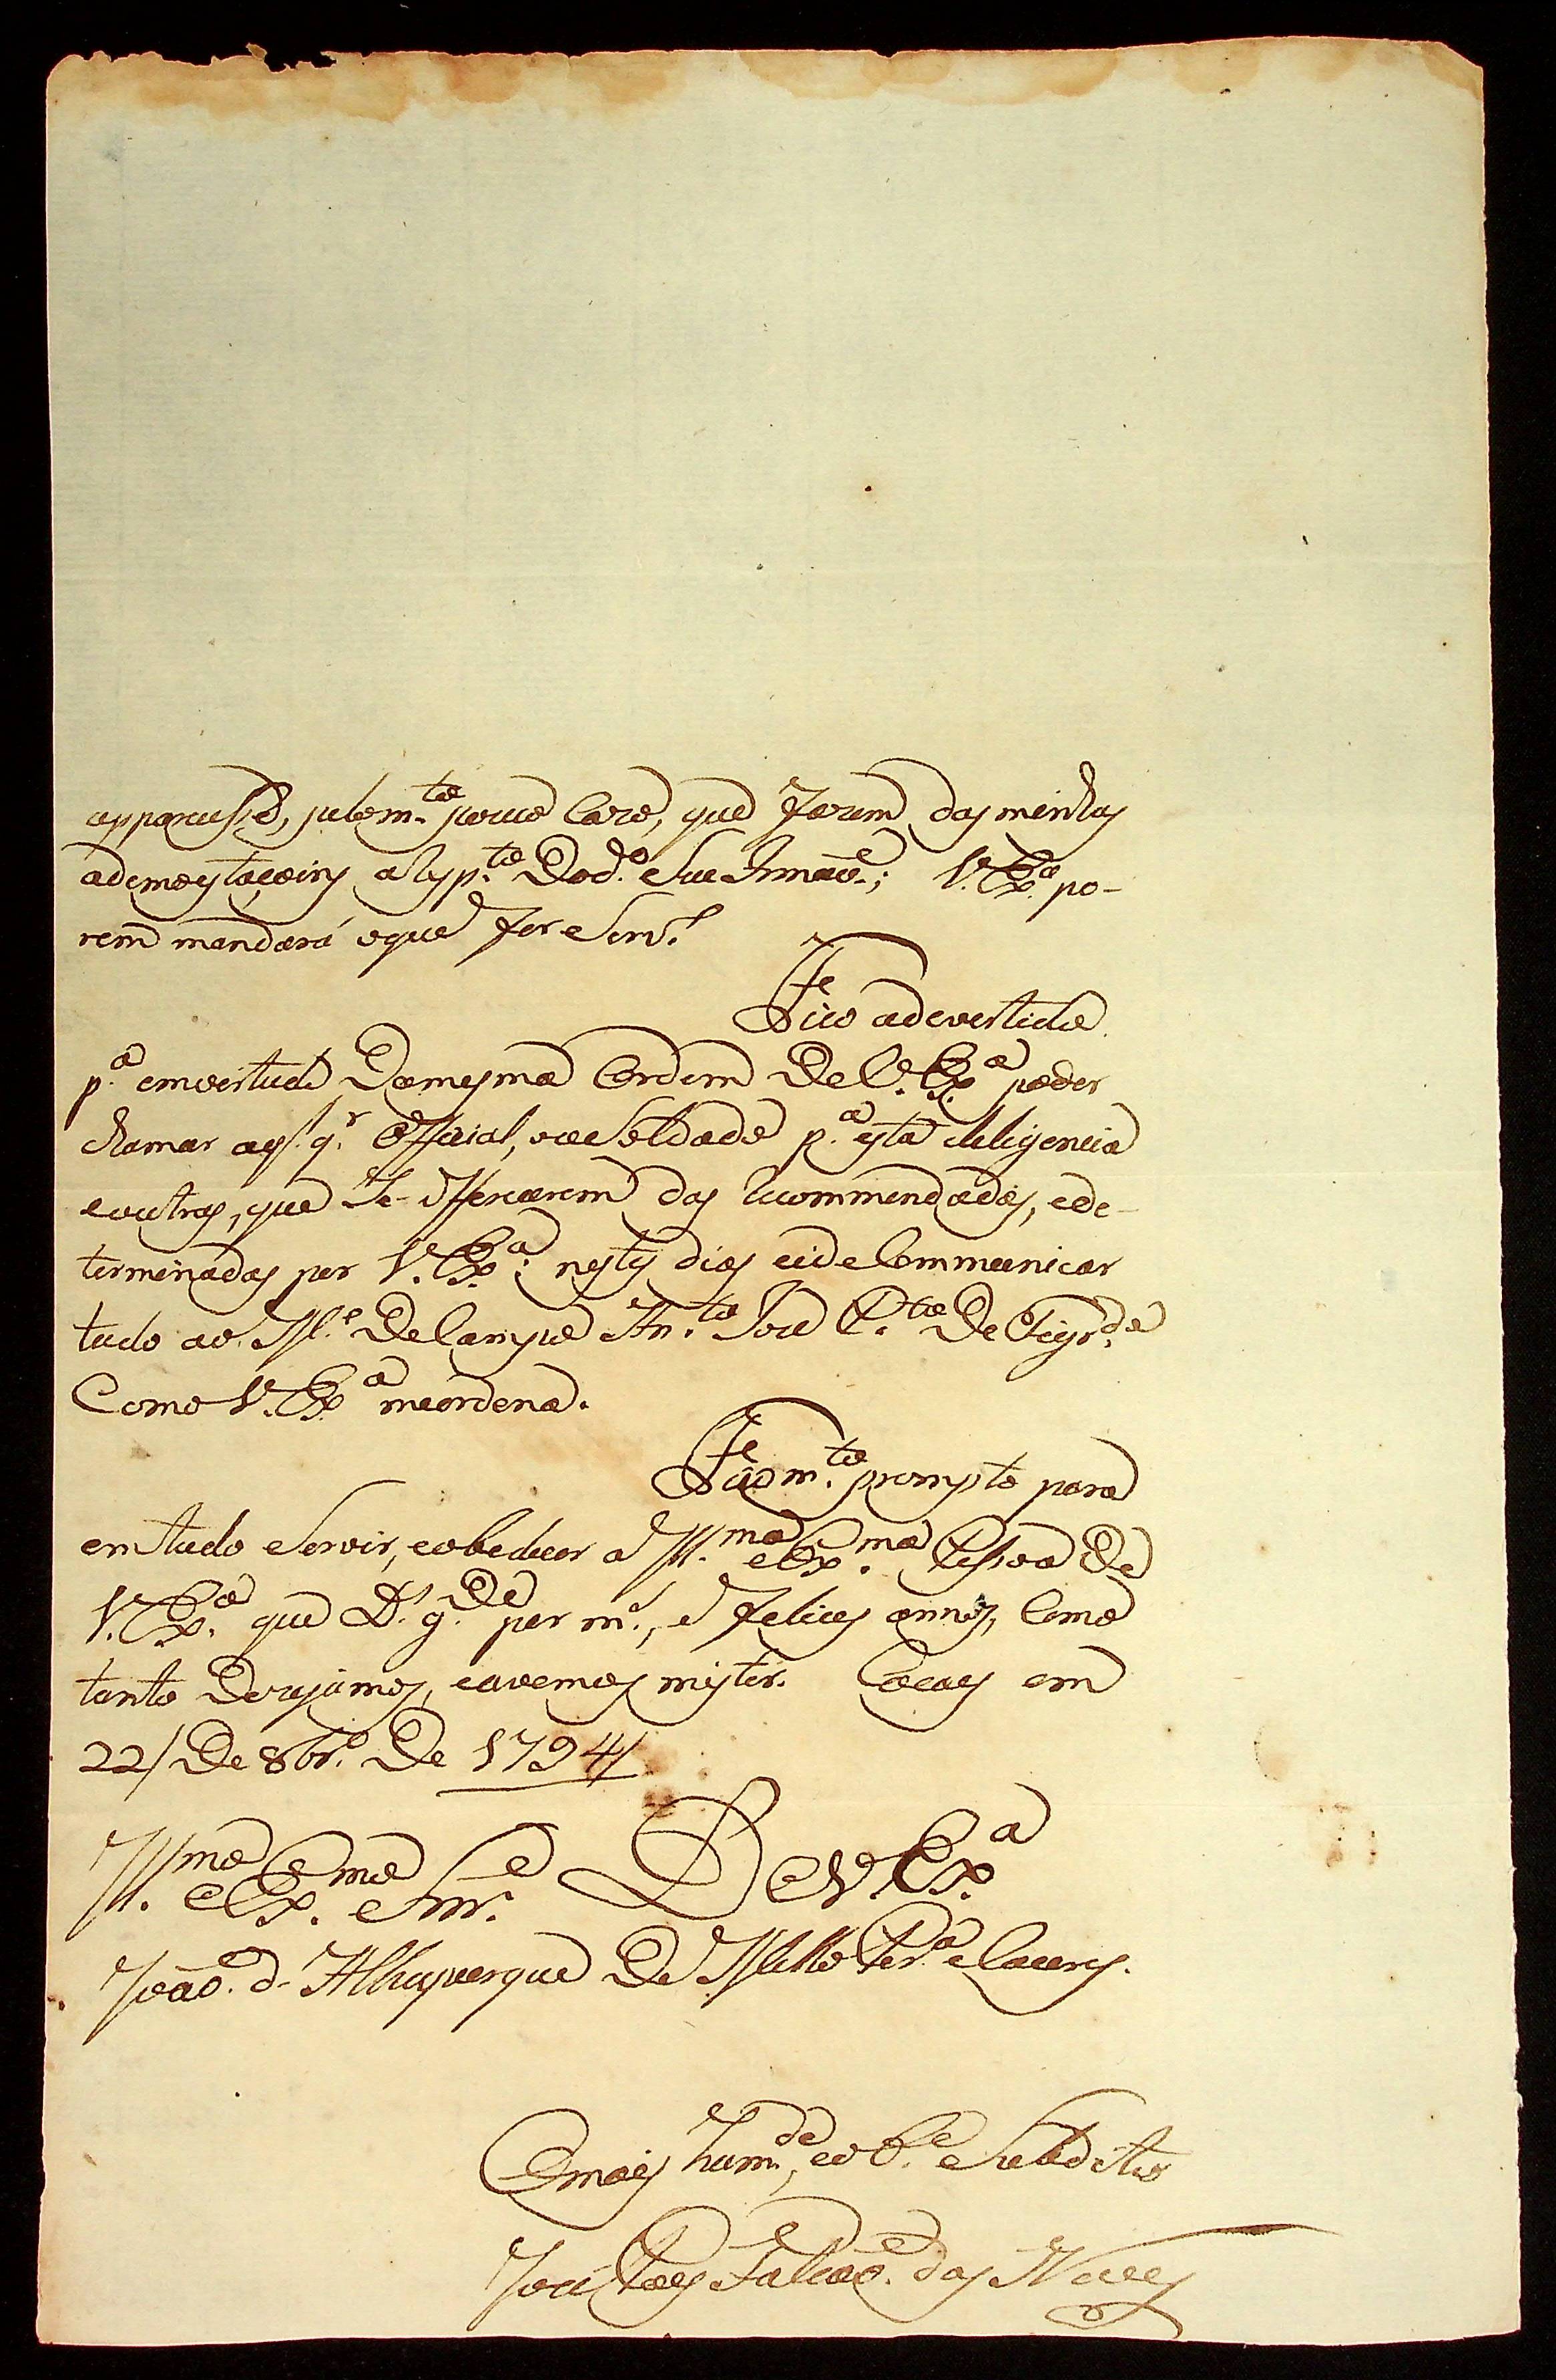 apparecesse, pelo m.to pouco Cazo, que fazem das minhas
ademoestaçoins a esp.to Do d.o Seu Irmaõ; V. Ex.a po-
rem mandará oque for Serv.o
Fico adevertido
p.a emvertude Damesma Ordem De V. Ex.a poder
chamar a q.r Official, ou Soldado p.a esta deligencia
e outras, que Se-offerecerem das recommendadas, ede-
terminadas por V. Ex.a; nestes dias eide Communicar
tudo ao M.e De Campo An.to Joze P.to De Figr.do
Como V. Ex.a meordena.
Fico m.to prompto para
em tudo Servir, eobedecer a Ill.ma e Ex.ma Pessoa De
V. Ex.a que D.s g.De por m.s, e felices annos, Como
tanto Dezejamos, eavemos mister. Cocaes em
22/ De 8br.o De 1794/
Ill.mo e Ex.mo Snr.
De V. Ex.a
Joaõ d'Albuquerque De Mello Per.a e Caceres.
O mais hum.de, eob.e Subdito
Joze Paes Falcaõ das Neves